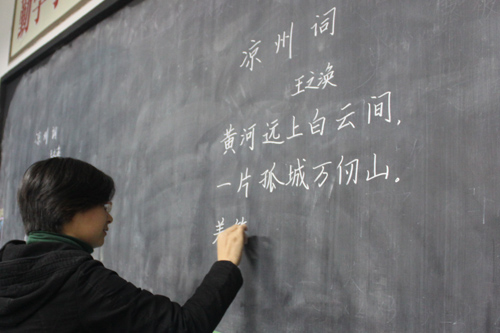 凉州词
王之涣
黄河远上白云间,
一片孤城万仞山。
羌
凉州词